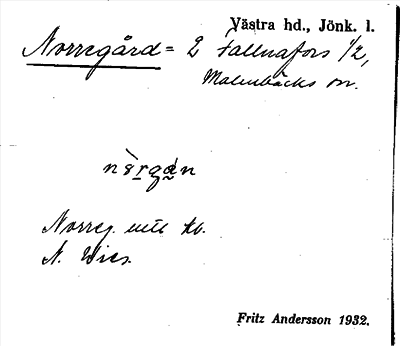 Västra hd., Jönk. l.
Norregård = 2 Fallnafors 1/2,
Malmbäcks sn.
Norreg. enl. kb.
N. Wies.
Fritz Andersson 1932.